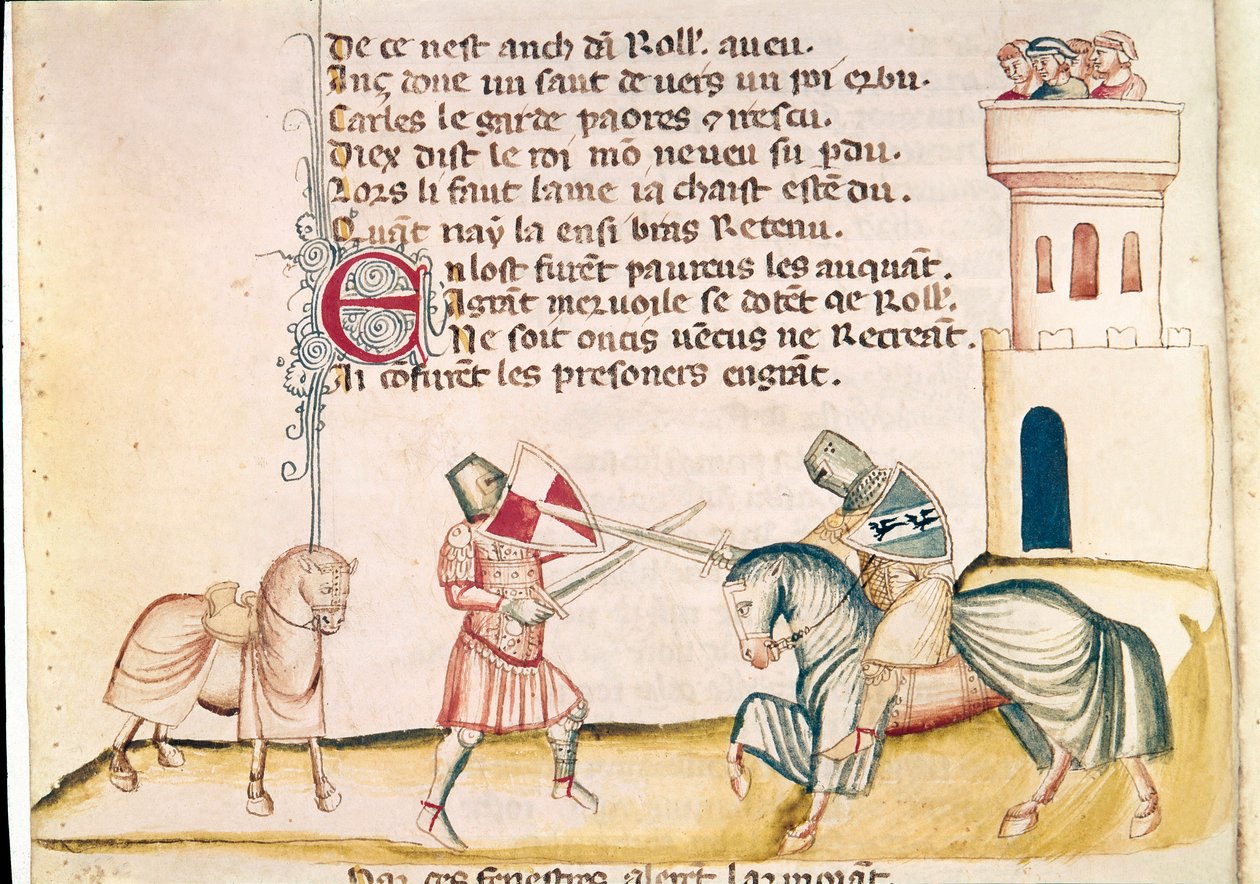 De ce nest anch dā Roll'. aueu.
Ainç done un saut deuers un pui erbu.
Carles le garde paores ⁊ irescu.
Diex dist le roi mō neueu su pdu.
Lors li faut lame ia chaist estēdu.
Quāt nay la ensi bras Retenu.
Enlost furēt paureus les auquāt.
Agrāt meruoile se dotēt qe Roll'.
Ne soit oncis uēcus ne Recreāt.
Ai cōfurēt les presoners engrāt.
Par ces fenestres alerēt larmoiāt.